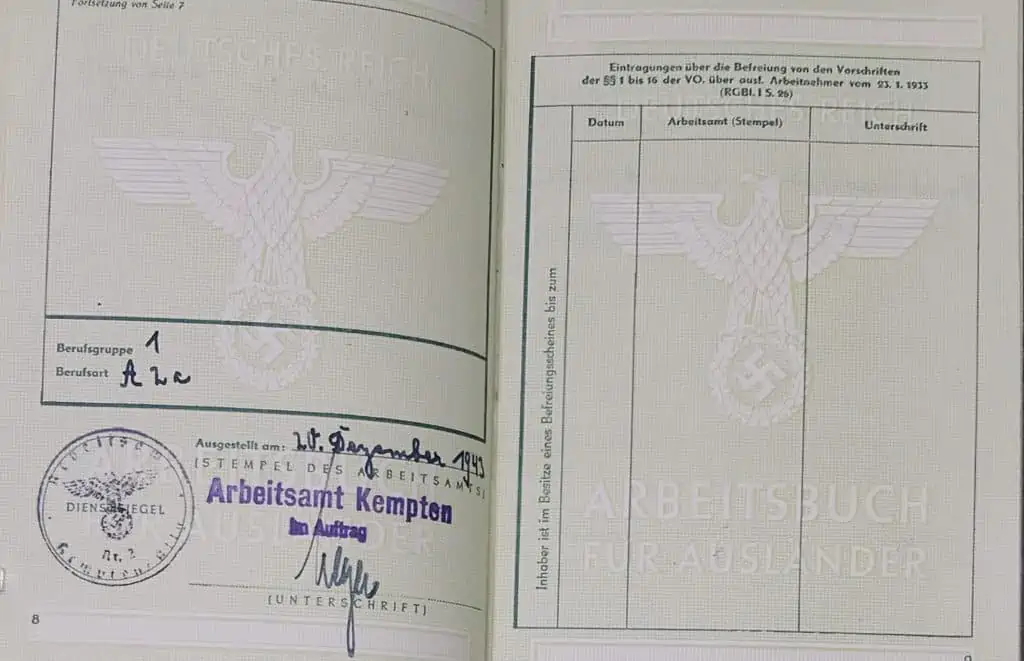 Fortsetzung von Seite 7
DEUTSCHES REICH
Berufsgruppe 1
Berufsart A 2a
Ausgestellt am: 20. Dezember 1943
(STEMPEL DES ARBEITSAMTS)
Arbeitsamt Kempten
Im Auftrag
(UNTERSCHRIFT)
Arbeitsamt
DIENSTSIEGEL
Nr. 2
Kempten/Allg.
FÜR AUSLÄNDER
8
Eintragungen über die Befreiung von den Vorschriften
der §§ 1 bis 16 der VO. über ausl. Arbeitnehmer vom 23. 1. 1933
(RGBl. I S. 26)
DEUTSCHES REICH
Datum Arbeitsamt (Stempel) Unterschrift
Inhaber ist im Besitze eines Befreiungsscheines bis zum
ARBEITSBUCH
FÜR AUSLÄNDER
9